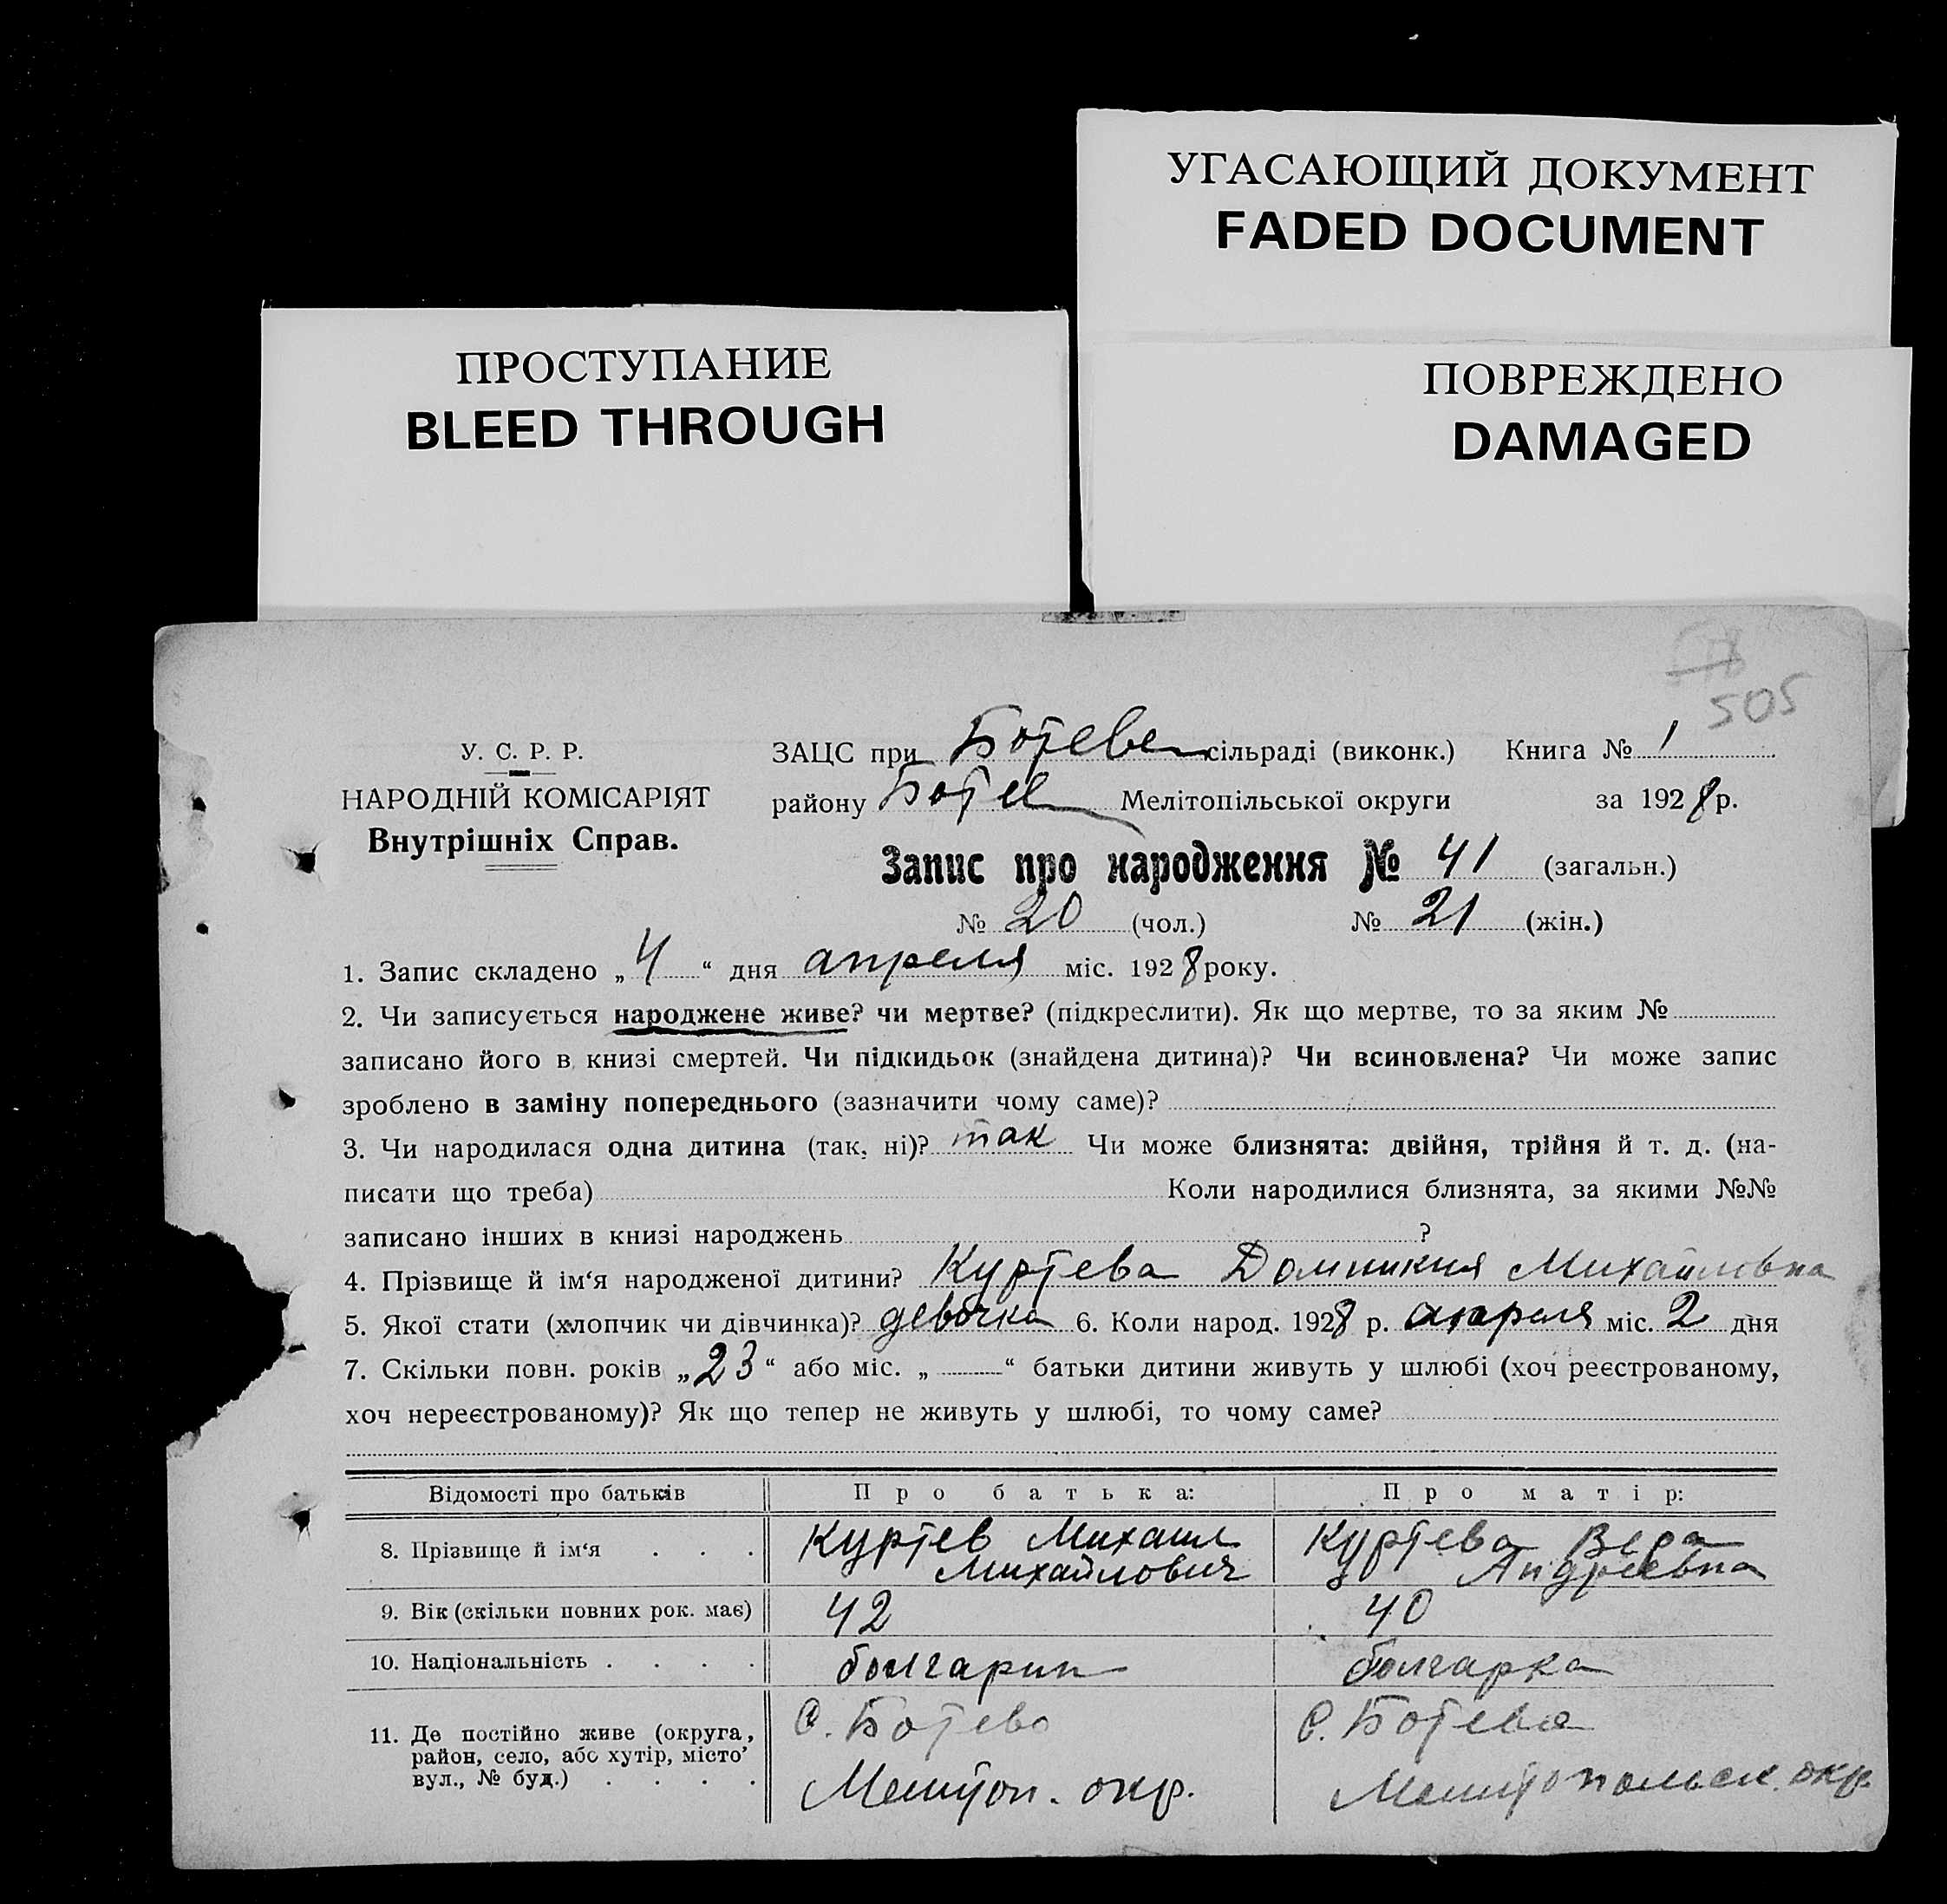 УГАСАЮЩИЙ ДОКУМЕНТ
FADED DOCUMENT
ПРОСТУПАНИЕ
BLEED THROUGH
ПОВРЕЖДЕНО
DAMAGED
505
У. С. Р. Р.
НАРОДНІЙ КОМІСАРІЯТ
Внутрішніх Справ.
ЗАЦС при Ботевен сільраді (виконк.) Книга № 1
району Ботев Мелітопільської округи за 1928 р.
Запис про народження № 41 (загальн.)
№ 20 (чол.) № 21 (жін.)
1. Запис складено „4“ дня апреля міс. 1928 року.
2. Чи записується народжене живе? чи мертве? (підкреслити). Як що мертве, то за яким №
записано його в книзі смертей. Чи підкидьок (знайдена дитина)? Чи всиновлена? Чи може запис
зроблено в заміну попереднього (зазначити чому саме)?
3. Чи народилася одна дитина (так, ні)? так Чи може близнята: двійня, трійня й т. д. (на-
писати що треба) Коли народилися близнята, за якими №№
записано інших в книзі народжень ?
4. Прізвище й ім‘я народженої дитини? Куртева Домникия Михайловна
5. Якої стати (хлопчик чи дівчинка)? девочка 6. Коли народ. 1928 р. апреля міс. 2 дня
7. Скільки повн. років „23“ або міс. „ “ батьки дитини живуть у шлюбі (хоч реєстрованому,
хоч нереєстрованому)? Як що тепер не живуть у шлюбі, то чому саме?
Відомості про батьків Про батька: Про матір:
8. Прізвище й ім‘я . . . Куртев Михаил Куртева Вера
Михайлович Андреевна
9. Вік (скільки повних рок. має) 42 40
10. Національність . . . . болгарин болгарка
11. Де постійно живе (округа, С. Ботево С. Ботево
район, село, або хутір, місто,
вул., № буд.) . . . . Мелитоп. окр. Мелитопольск. окр.